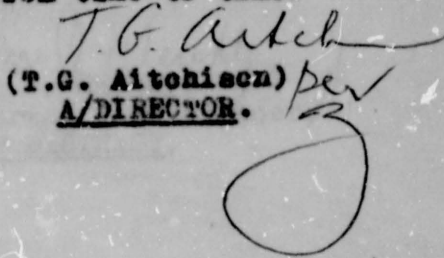 T.G. Aitch
(T.G. Aitchison) per
A/DIRECTOR.